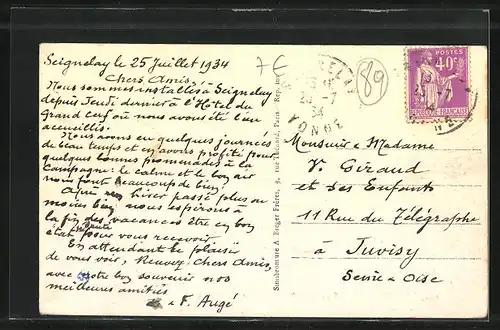 Seignelay le 25 Juillet 1934
Chers Amis
Nous sommes installés à Seignelay
depuis Jeudi dernier à l'Hôtel du
Grand Cerf où nous avons été bien
accueillis.
Nous avons eu quelques journées
de beau temps et en avons profité pour
quelques bonnes promenades à la
campagne: le calme et le bon air
nous font beaucoup de bien;
Après hiver passé plus ou
moins bien, nous espérons à
la fin des vacances être en bon
état pour vous recevoir.
santé
En attendant le plaisir
de vous voir, Recevez Chers Amis
avec notre bon souvenir nos
meilleures amitiés
F. Augé
7€
89
YONNE
POSTES
40c
REPUBLIQUE FRANÇAISE
Monsieur & Madame
V. Giraud
et Ses Enfants
11 Rue du Télégraphe
à Juvisy
Seine & Oise
Simi-Bromure A. Breger Frères, 9, rue Thénard, Paris